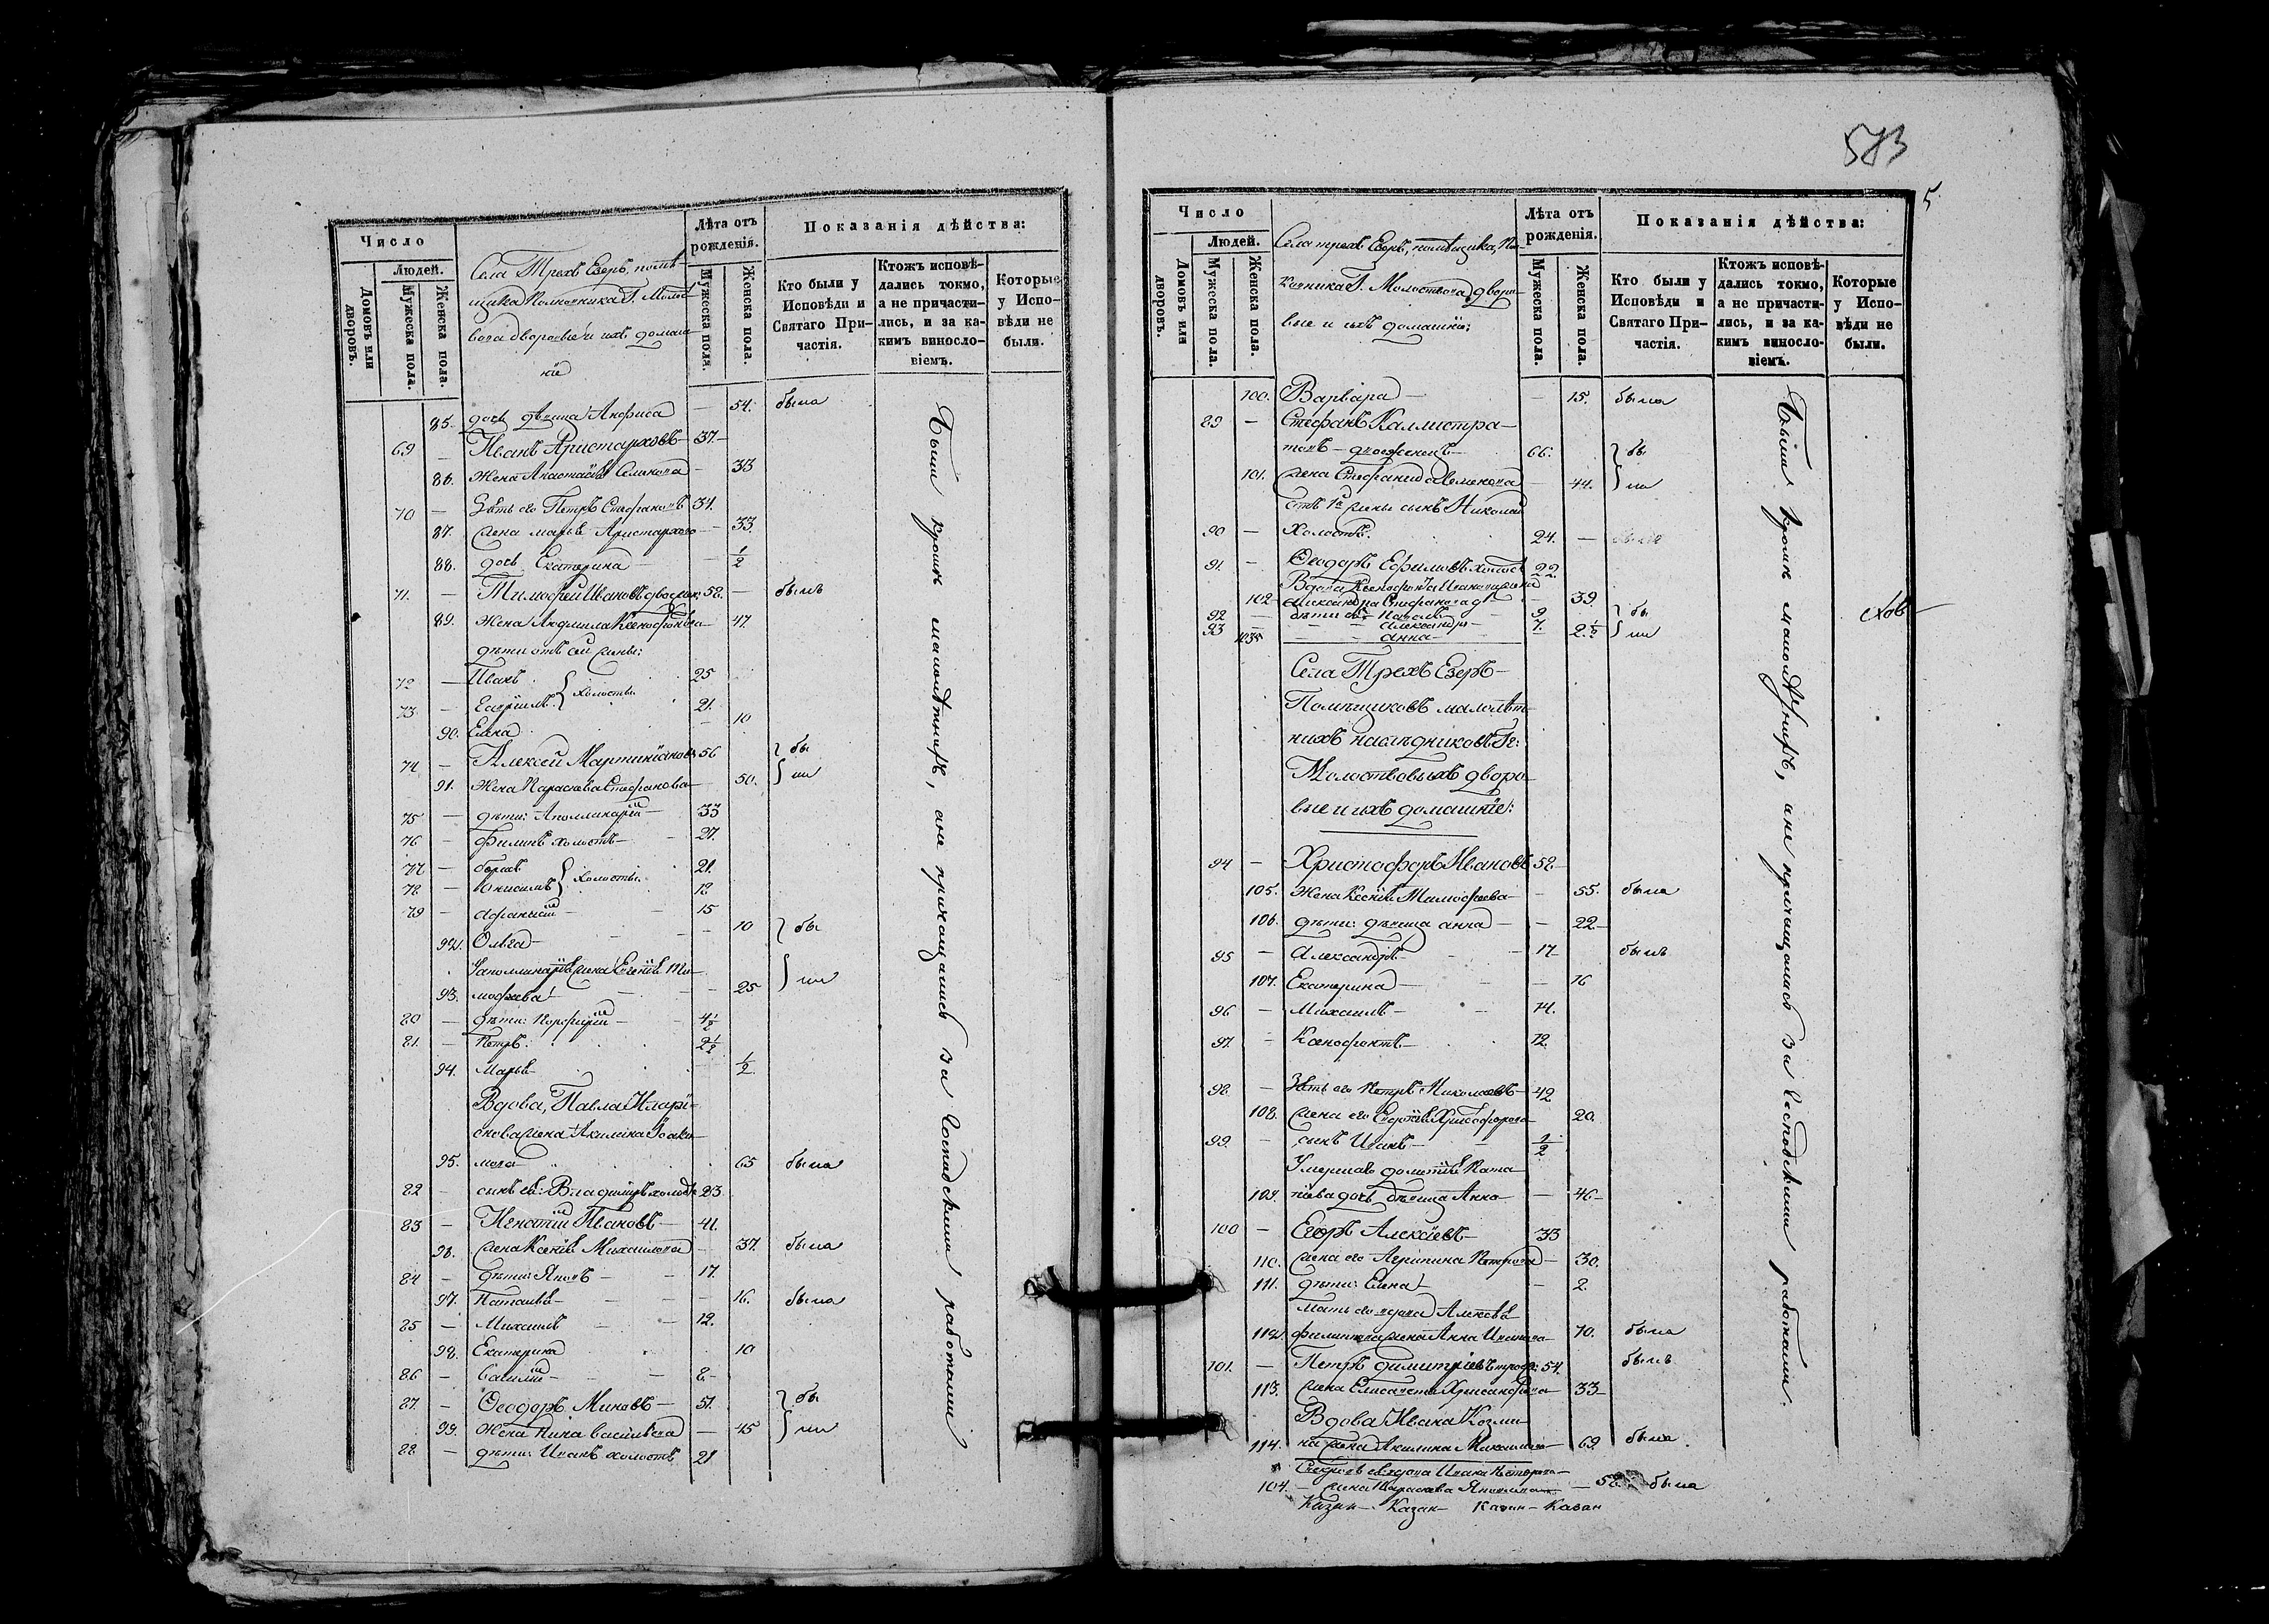 583
5
Число
Людей.
Домовъ или дворовъ.
Мужеска пола.
Женска пола.
Села Трехъ Езеръ, помѣ-
щика Полковника Г. Молост-
вова дворовые и ихъ домаш-
ніе
Лѣта отъ рожденія.
Мужеска пола.
Женска пола.
Показанія дѣйства:
Кто были у Исповѣди и Святаго Причастія.
Ктожъ исповѣ-дались токмо, а не причасти-лись, и за ка-кимъ винословіемъ.
Которые у Исповѣди не были.
85. дочь дѣвица Анфиса — 54. была
69 — Иванъ Аристарховъ — 37. —
86. Жена Анастасія Семенова — 33
70 — Зять его Петръ Стефановъ 34.
87. жена Марья Аристархова — 33.
88. дочь Екатерина — ½
71. — Тимофей Ивановъ двоежен: 58. — былъ
89. Жена Людмила Ксенофонтова — 47.
дѣти отъ сей жены:
72 — Иванъ 25
73 — Гавріилъ } холосты 21.
90. Елена — 10
74 — Алексей Мартиніановъ 56 } бы
91. Жена Параскева Стефанова — 50. } ли
75 — дѣти: Аполлинарій — 33
76 — Филипъ холостъ — 27.
77 — Борисъ 21.
78 — Онисимъ } холосты 18
79 — Афанасій — 15
92. Ольга — 10 } бы
У Аполлинарія жена Евгенія Ти-
93. мофеева — 25 } ли
80 — дѣти: Порфирій — 4½
81. — Петръ 2½
94. Марья ½
Вдова, Павла Иларі-
онова жена Акилина Іоаки-
95. мова 65 была
82 — сынъ ея: Владиміръ холостъ 23
83 — Игнатій Ивановъ — 41.
96. жена Ксенія Михаилова — 37. была
84 — дѣти: Яковъ — 17.
97. Наталья — 16. была
85 — Михаилъ — 12.
98. Екатерина 10
86 — Василій — 8 —
87. — Ѳеодоръ Миновъ — 51. } бы
99. Жена Нина Васильева — 45 } ли
88 — дѣти: Иванъ холостъ 21
Были кромѣ малолѣтнихъ, а не причащались за Господскими работами
Число
Людей.
Домовъ или дворовъ.
Мужеска пола.
Женска пола.
Села трехъ Езеръ, помѣщика, Пол-
ковника Г. Молоствова, дворо-
вые и ихъ домашніе;
Лѣта отъ рожденія.
Мужеска пола.
Женска пола.
Показанія дѣйства:
Кто были у Исповѣди и Святаго Причастія.
Ктожъ исповѣ-дались токмо, а не причасти-лись, и за ка-кимъ винословіемъ.
Которые у Исповѣди не были.
100. Варвара — — 15. была
89 — Стефанъ Каллистра-
товъ — двоеженецъ — 66. } бы
101. жена Стефанида Семенова — 44. } ли
Отъ 1й жены сынъ Николай
90 — холостъ. 24. —
91. — Ѳеодоръ Ефимовъ холостъ 22
Вдова Ксенофонта Иванова жена
102 Александра Стефанова — 39
92 — дѣти ея: Павелъ — 9 } бы
93 — Александръ — 7.
103 — Анна — 2½ } ли
Села Трехъ Езеръ —
Помѣщиковъ малолѣт-
нихъ наслѣдниковъ Гг:
Молоствовыхъ дворо-
вые и ихъ домашніе:
94 — Христофоръ Ивановъ 58 —
105. Жена Ксенія Тимофеева — 55. была
106. дѣти: дѣвица Анна — 22 —
95 — Александръ — 17 былъ
107. Екатерина — 16
96 — Михаилъ — 14.
97. — Ксенофонтъ — 12.
98 — Зять его Петръ Николаевъ — 42
108. жена его Христофорова 20.
99. — сынъ Иванъ — ½
Умершаго
109. дочь дѣвица Анна — 46 —
100 — Егоръ Алексѣевъ — 33
110. жена его Агрипина Петрова — 30.
111. дѣти: Елена — 2.
Мать его вдова Алексѣя
112. Филипова жена Анна Иванова — 70. была
101. — Петръ Димитріевъ троеж: 54. былъ
113. жена Елисавета Хрисанфова — 33 —
Вдова Ивана Козми-
114. на жена Акилина Михаилова — 69. была
вдова Ивана Петрова —
104. — жена Параскева — 58 была
Казан — Казан — Казан — Казан
Были кромѣ малолѣтнихъ, а не причащались за Господскими работами.